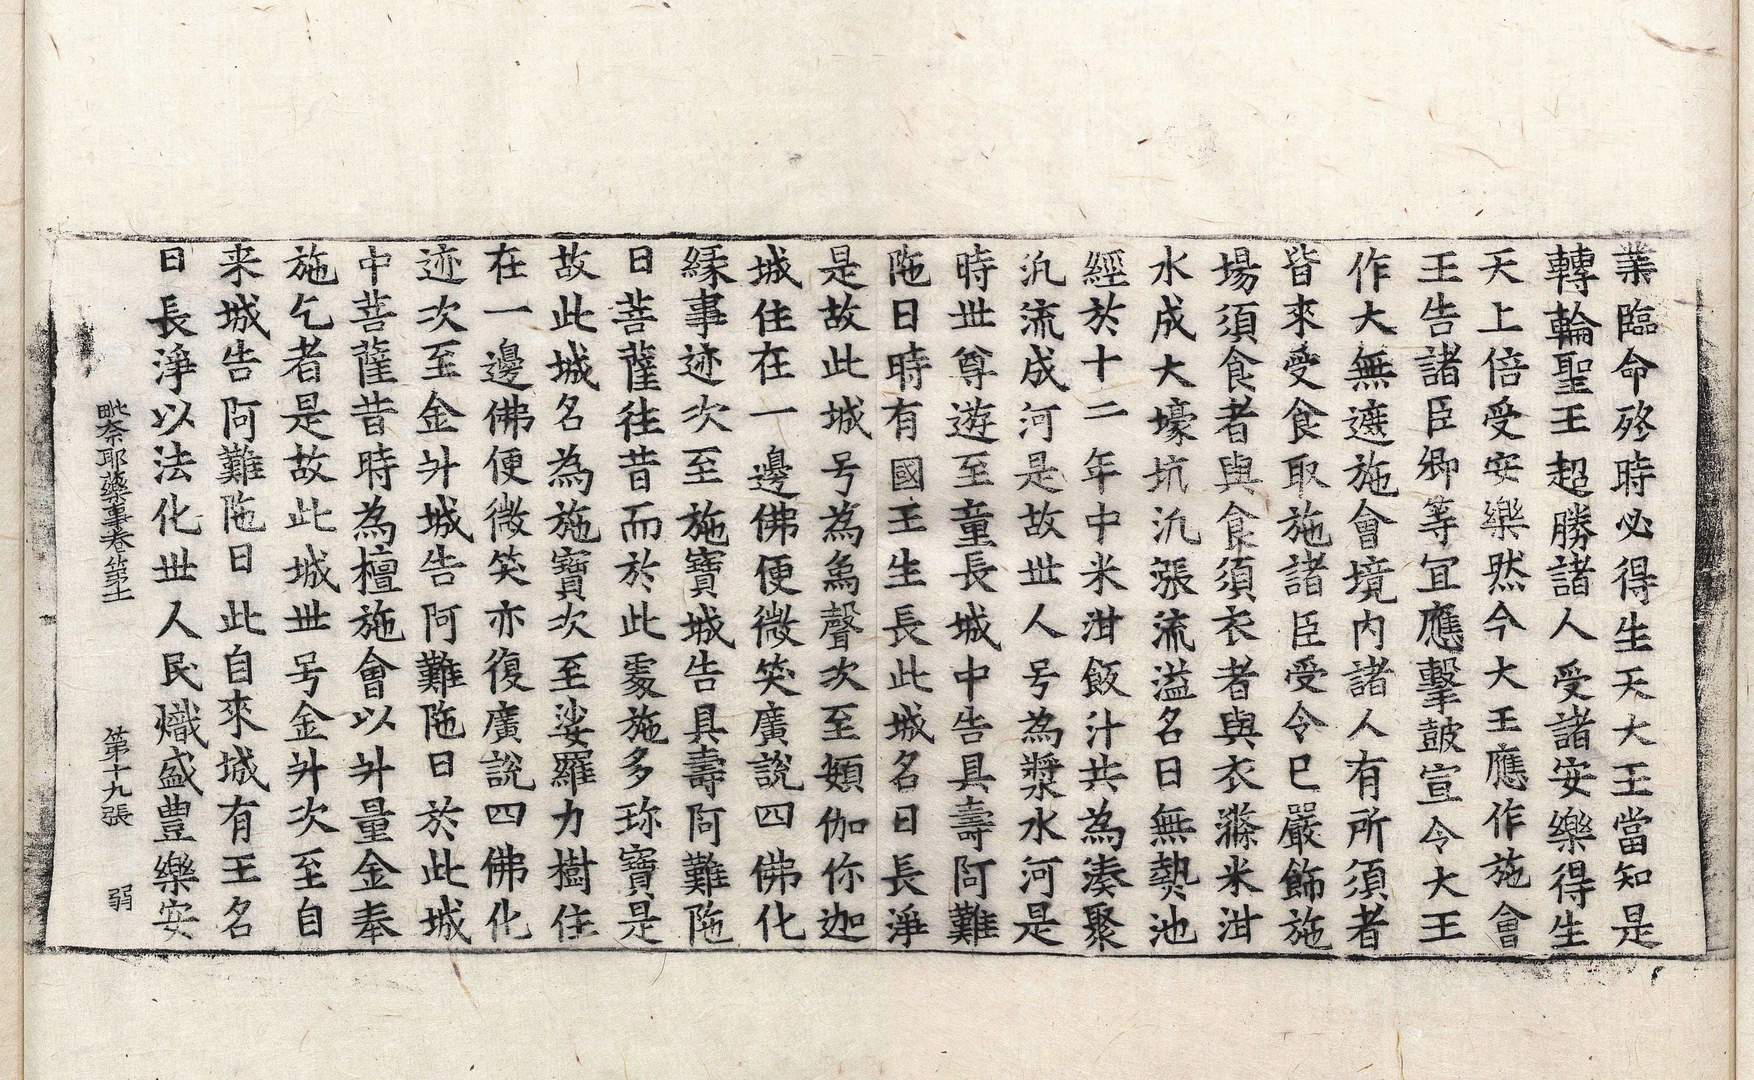 業臨命終時必得生天大王當知是
轉輪聖王超勝諸人受諸安樂得生
天上倍受安樂然今大王應作施會
王告諸臣卿等冝應擊鼓宣令大王
作大無遮施會境内諸人有所須者
皆來受食取施諸臣受令已嚴飾施
場須食者與食須衣者與衣滌米泔
水成大壕坑汎漲流溢名曰無熱池
經於十二年中米泔飯汁共為湊聚
汎流成河是故世人号為漿水河是
時世尊遊至童長城中告具壽阿難
陁曰時有國王生長此城名曰長淨
是故此城号為𠃔聲次至頞伽你迦
城住在一邊佛便微笑廣說四佛化
縁事迹次至施寶城告具壽阿難陁
曰菩薩往昔而於此處施多珎寶是
故此城名為施寶次至娑羅力樹住
在一邊佛便微笑亦復廣說四佛化
迹次至金升城告阿難陁曰於此城
中菩薩昔時為檀施會以升量金奉
施乞者是故此城世号金升次至自
来城告阿難陁曰此自來城有王名
曰長淨以法化世人民熾盛豊樂安
毗奈耶藥事卷第十一 第十九張 弱